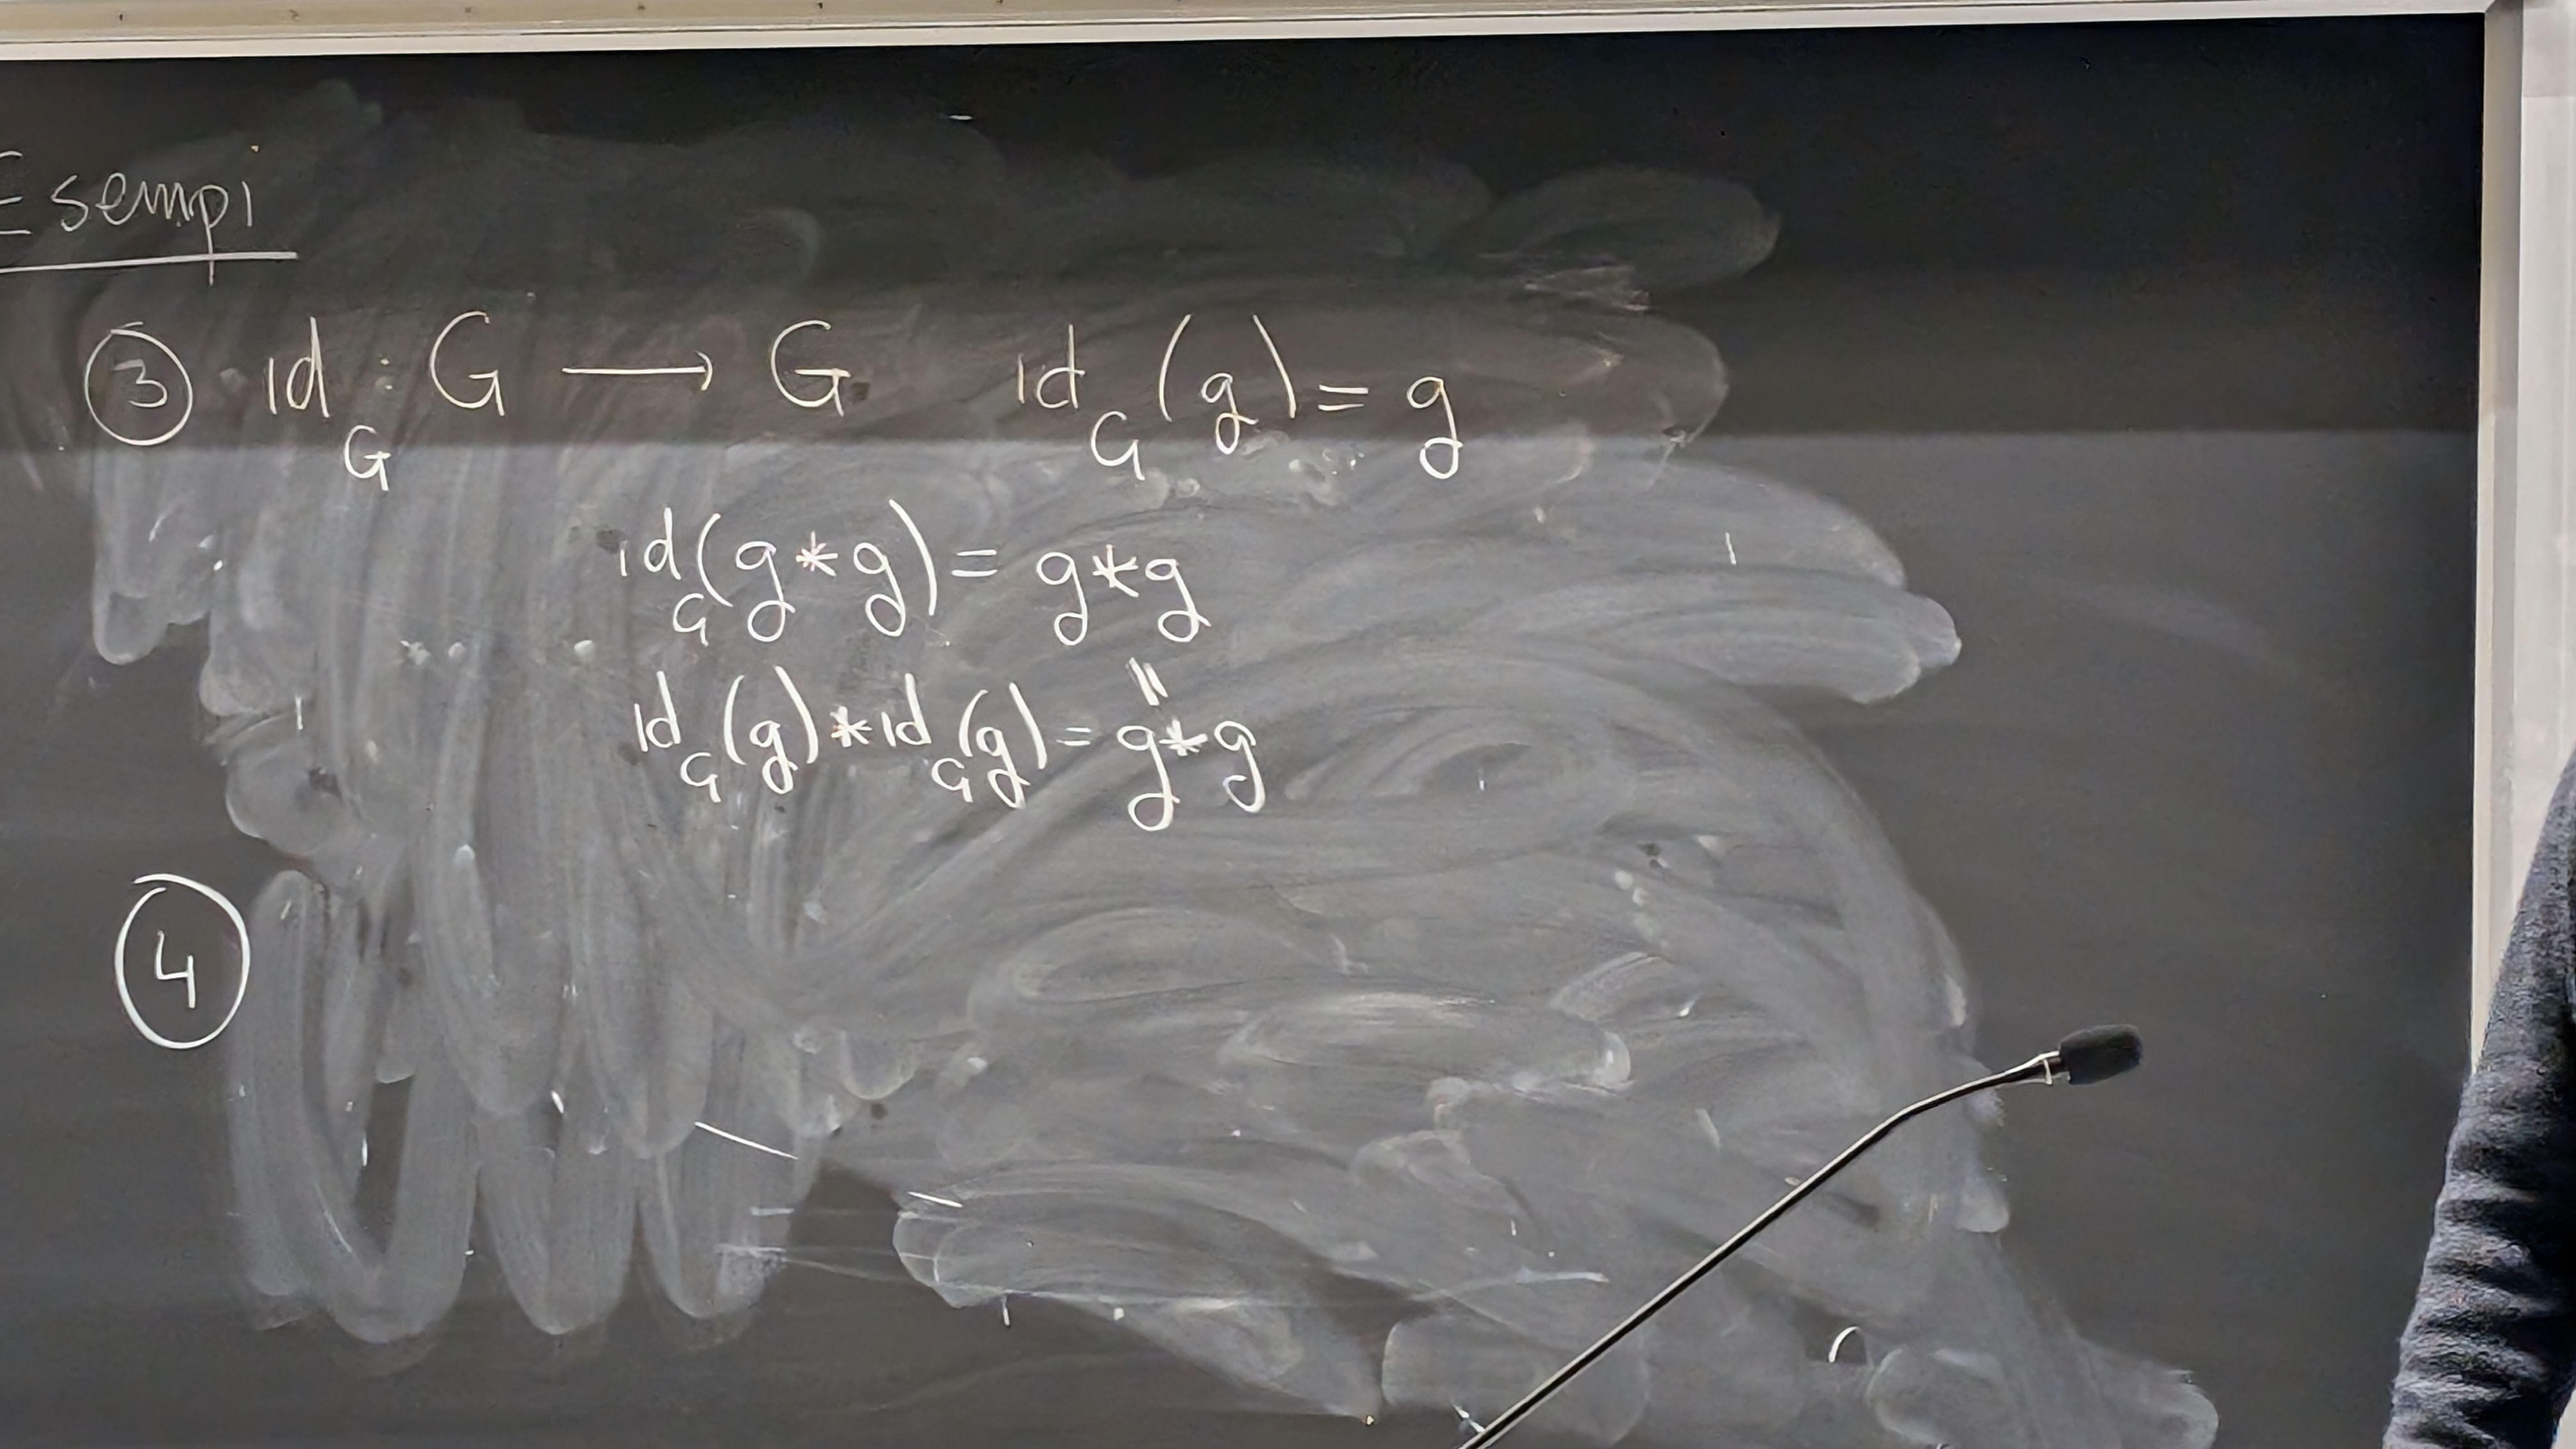 Esempi
③ id_G : G ⟶ G id_G (g) = g
id_G (g * g) = g * g
||
id_G (g) * id_G (g) = g * g
④